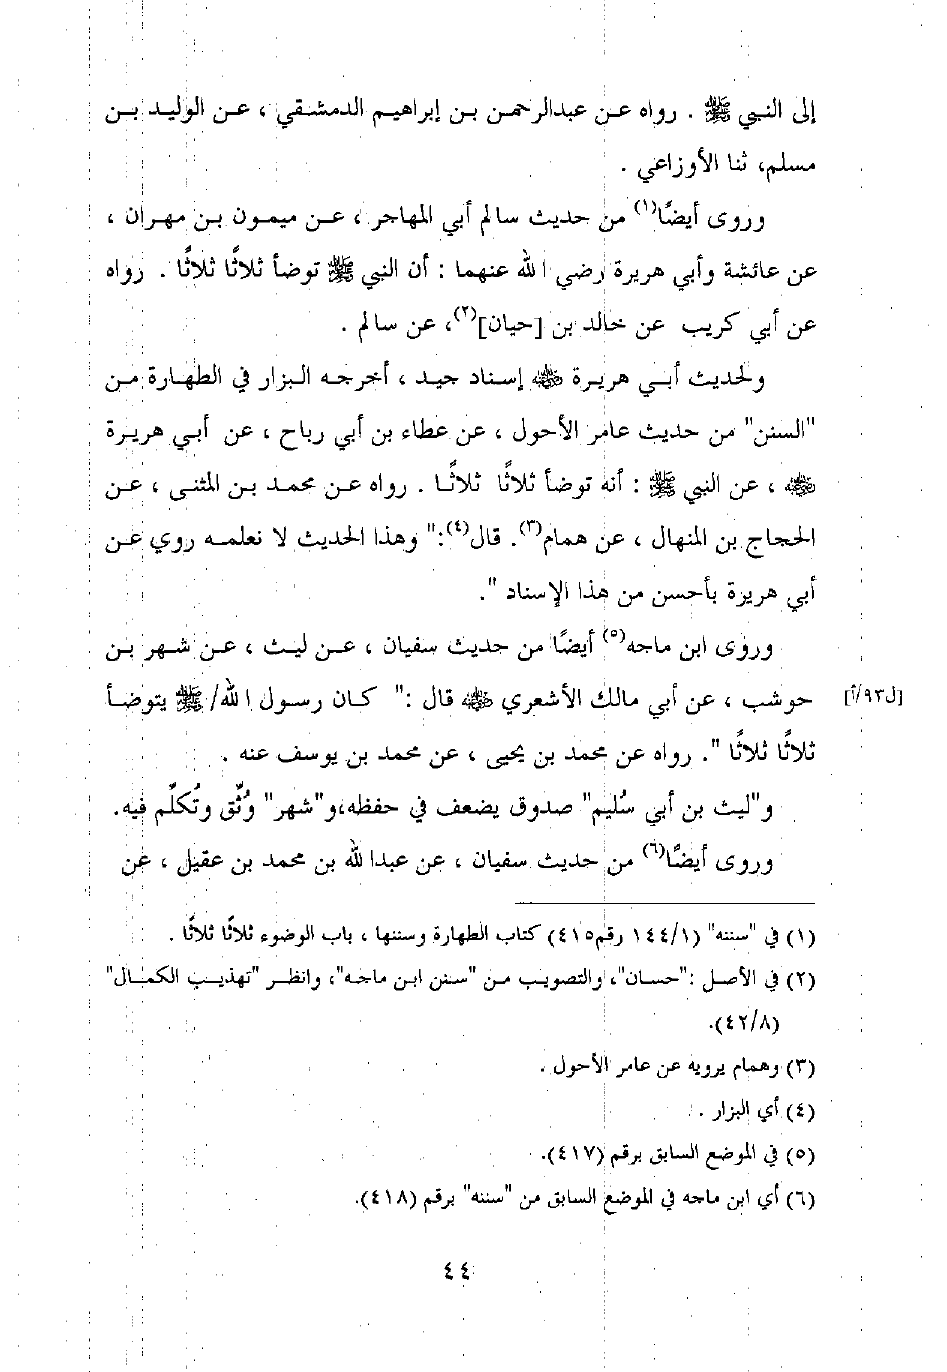 إلى النبي ﷺ . رواه عن عبدالرحمن بن إبراهيم الدمشقي ، عن الوليد بن
مسلم، ثنا الأوزاعي .
وروى أيضًا(١) من حديث سالم أبي المهاجر ، عن ميمون بن مهران ،
عن عائشة وأبي هريرة رضي الله عنهما : أن النبي ﷺ توضأ ثلاثًا ثلاثًا . رواه
عن أبي كريب عن خالد بن [حيان](٢)، عن سالم .
ولحديث أبي هريرة رضي الله عنه إسناد جيد ، أخرجه البزار في الطهارة من
"السنن" من حديث عامر الأحول ، عن عطاء بن أبي رباح ، عن أبي هريرة
رضي الله عنه ، عن النبي ﷺ : أنه توضأ ثلاثًا ثلاثًا . رواه عن محمد بن المثنى ، عن
الحجاج بن المنهال ، عن همام(٣). قال(٤):" وهذا الحديث لا نعلمه روي عن
أبي هريرة بأحسن من هذا الإسناد ".
وروى ابن ماجه(٥) أيضًا من حديث سفيان ، عن ليث ، عن شهر بن
حوشب ، عن أبي مالك الأشعري رضي الله عنه قال :" كان رسول الله/ ﷺ يتوضأ [ل٩٣/أ]
ثلاثًا ثلاثًا ". رواه عن محمد بن يحيى ، عن محمد بن يوسف عنه .
و"ليث بن أبي سُليم" صدوق يضعف في حفظه،و"شهر" وُثِّق وتُكلِّم فيه.
وروى أيضًا(٦) من حديث سفيان ، عن عبدالله بن محمد بن عقيل ، عن
(١) في "سننه" (١٤٤/١ رقم٤١٥) كتاب الطهارة وسننها ، باب الوضوء ثلاثًا ثلاثًا .
(٢) في الأصل :"حسان"، والتصويب من "سنن ابن ماجه"، وانظر "تهذيب الكمال"
(٤٢/٨).
(٣) وهمام يرويه عن عامر الأحول .
(٤) أي البزار .
(٥) في الموضع السابق برقم (٤١٧).
(٦) أي ابن ماجه في الموضع السابق من "سننه" برقم (٤١٨).
٤٤